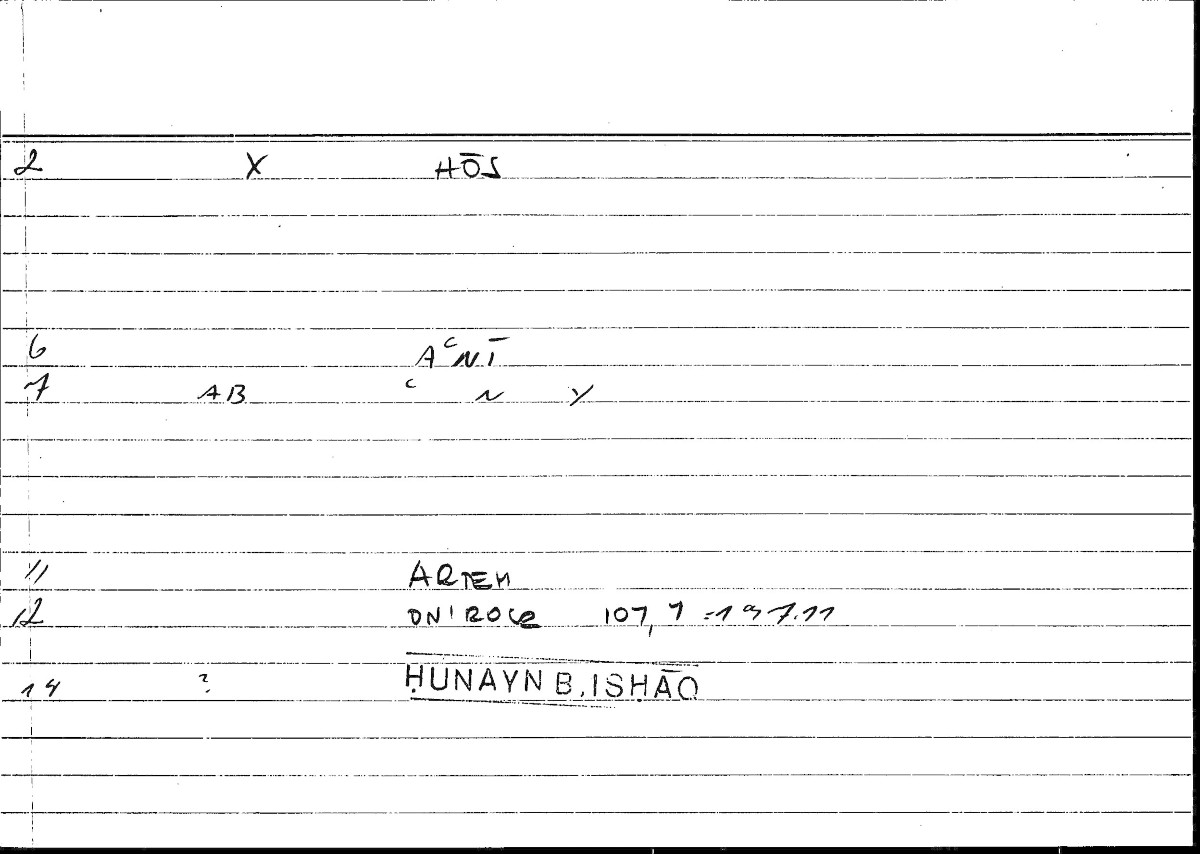 2 X HŌS
6 AᶜNĪ
7 AB ᶜ N Y
11 ARTEM
12 ONIROCR 107, 7 = 197.11
14 ? ḤUNAYN B. ISḤĀQ